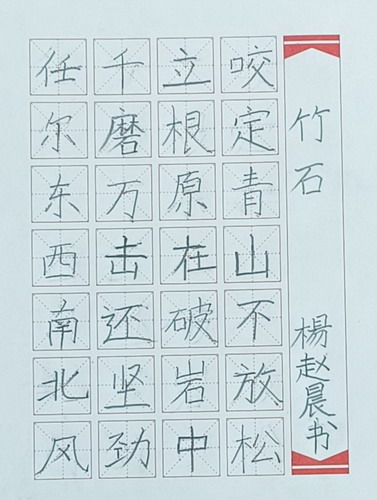 竹石
楊赵晨书
咬定青山不放松
立根原在破岩中
千磨万击还坚劲
任尔东西南北风